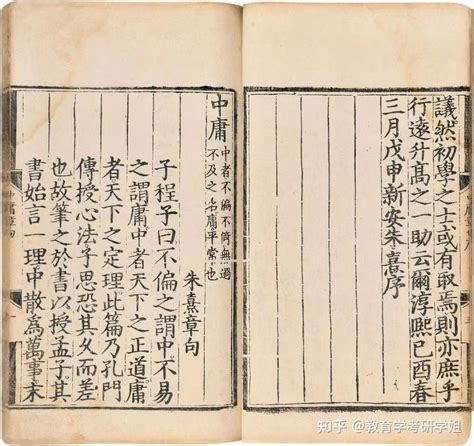 議然初學之士或有取焉則亦庶乎
行遠升髙之一助云爾淳熙己酉春
三月戊申新安朱熹序
中庸
中者不偏不倚無過
不及之名庸平常也
朱熹章句
子程子曰不偏之謂中不易
之謂庸中者天下之正道庸
者天下之定理此篇乃孔門
傳授心法子思恐其久而差
也故筆之於書以授孟子其
書始言一理中散為萬事末
知乎 @教育学考研学姐